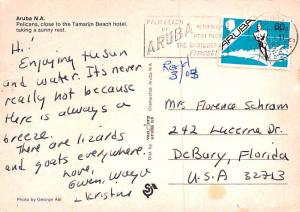 Aruba N.A.
Pelicans, close to the Tamarijn Beach hotel,
taking a sunny rest.
Hi!
Enjoying the sun
and water. It's never
really hot because
there is always a
breeze.
There are lizards
and goats everywhere.
Love,
Gwen, Wayne
& Kristine
Photo by George Abl
PALM BEACH
ARUBA
FINEST
ARUBA
60c
Mrs Florence Schram
242 Lucerne Dr.
DeBary, Florida
U.S.A 32713